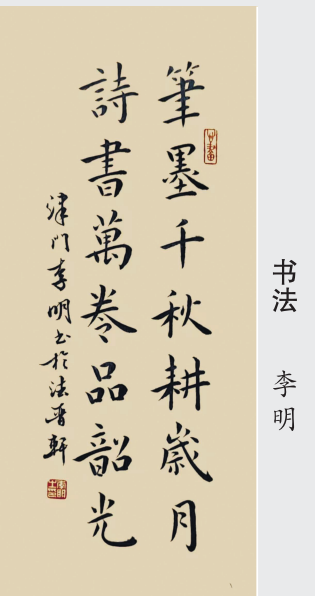 筆墨千秋耕歲月
詩書萬卷品韶光
津门李明书于法晋轩
书法 李明